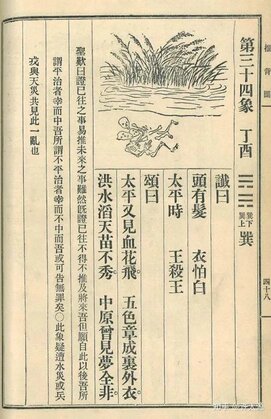 推背圖
四十八
第三十四象 丁酉
巽下
巽上
巽
讖曰
頭有髮 衣怕白
太平時 王殺王
頌曰
太平又見血花飛。五色章成裏外衣
洪水滔天苗不秀。中原曾見夢全非
聖歎曰證已往之事易推未來之事難然既證已往不得不推及將來吾但願自此以後吾所
謂平治者幸而中吾所謂不平治者幸而不中吾或可告無罪矣○此象疑遭水災或兵
戎與天災共見此一亂也
知乎